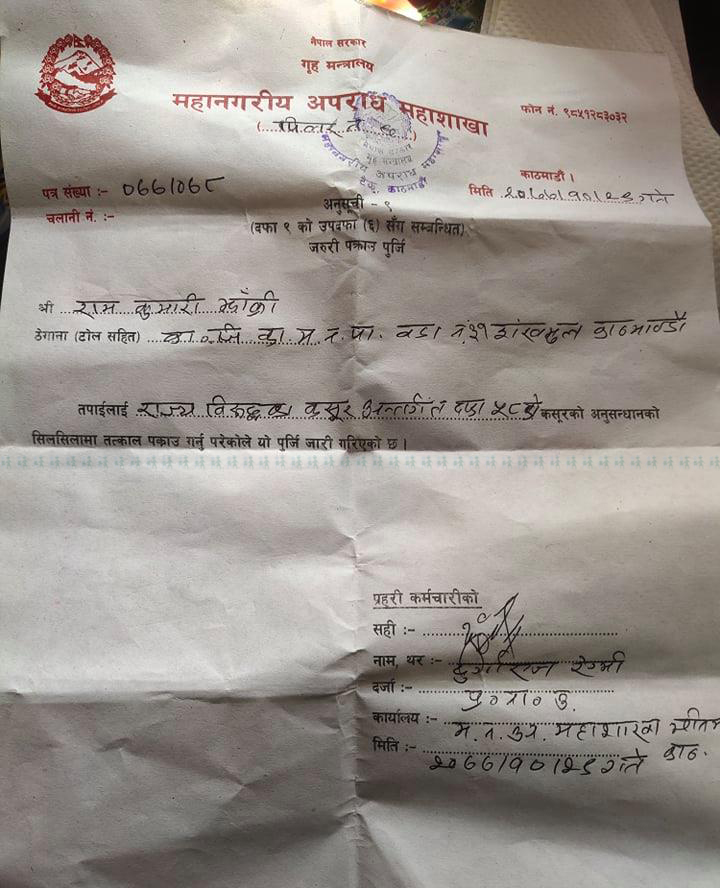 नेपाल सरकार
गृह मन्त्रालय
महानगरीय अपराध महाशाखा
फोन नं. ९८५१२८३०३२
काठमाडौं ।
पत्र संख्या :- ०७७/०७८
मिति २०७७/१०/२८ गते
चलानी नं. :-
अनुसूची - ९
(दफा ९ को उपदफा (६) सँग सम्बन्धित)
जरुरी पक्राउ पुर्जि
श्री राम कुमारी झाँक्री
ठेगाना (टोल सहित) का.जि. का.म.न.पा. वडा नं.३१ शंखमुल काठमाण्डौ
तपाईलाई राज्य विरूद्धका कसूर अन्तर्गत दफा ५८ को कसूरको अनुसन्धानको
सिलसिलामा तत्काल पक्राउ गर्नु परेकोले यो पुर्जि जारी गरिएको छ।
प्रहरी कर्मचारीको
सही :-
नाम, थर :- दुर्गाराज रेग्मी
दर्जा :- प्र०ना०उ.
कार्यालय :- म.न.अप. महाशाखा
मिति :- २०७७/१०/२८ गते काठ.